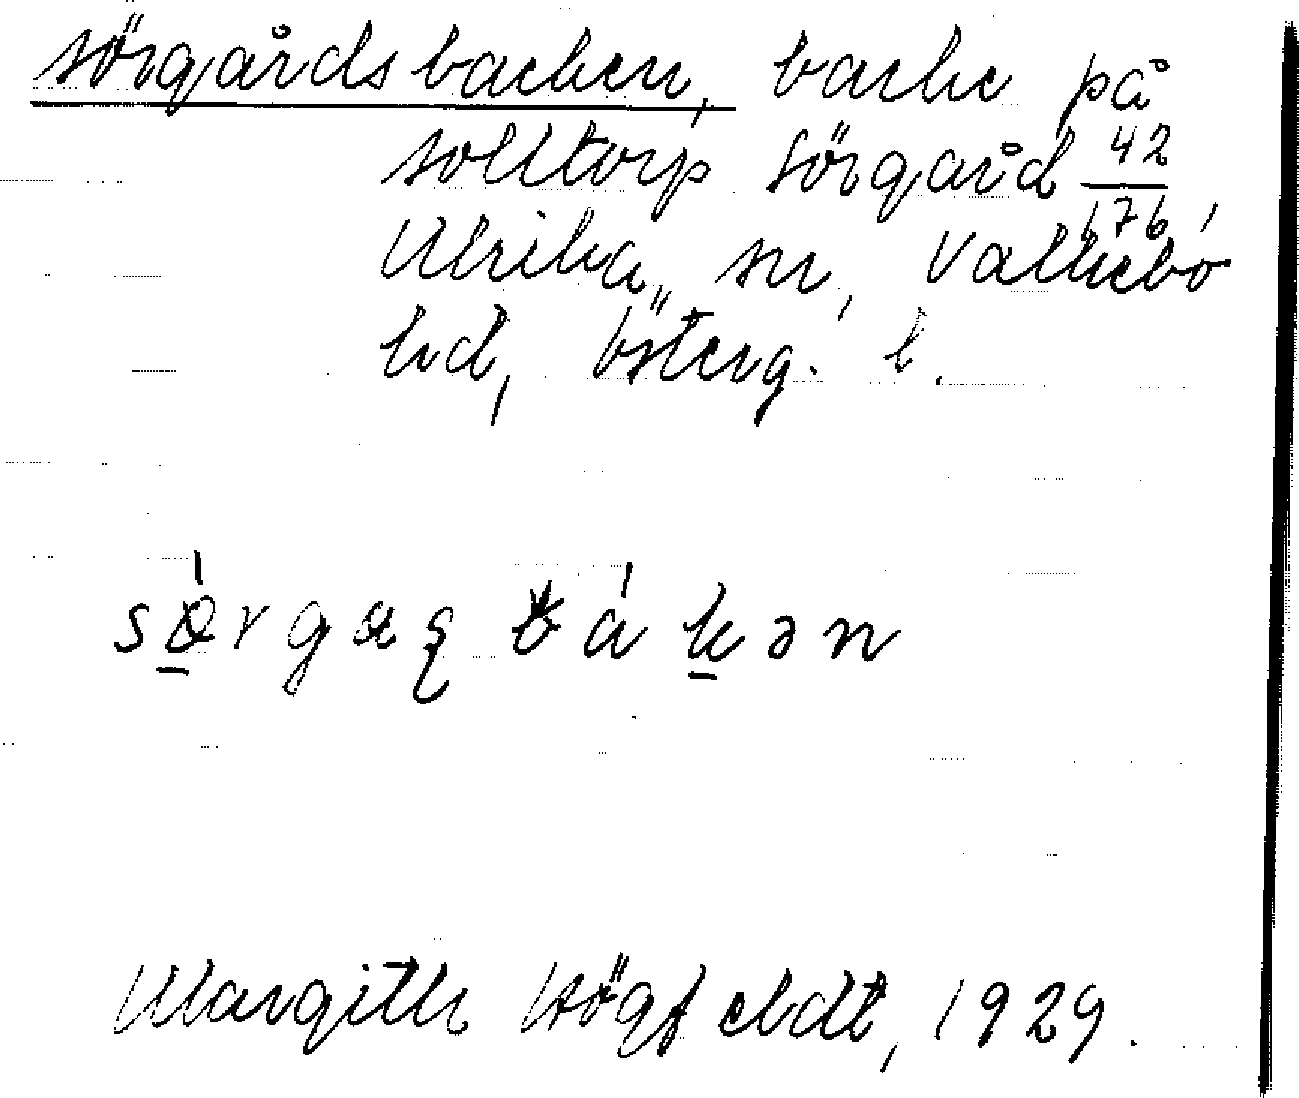 Sörgårdsbacken, backe på
Solltorp Sörgård 42/176,
Ulrika sn, Valkebo
hd, Österg. l.
Margith Högfeldt, 1929.